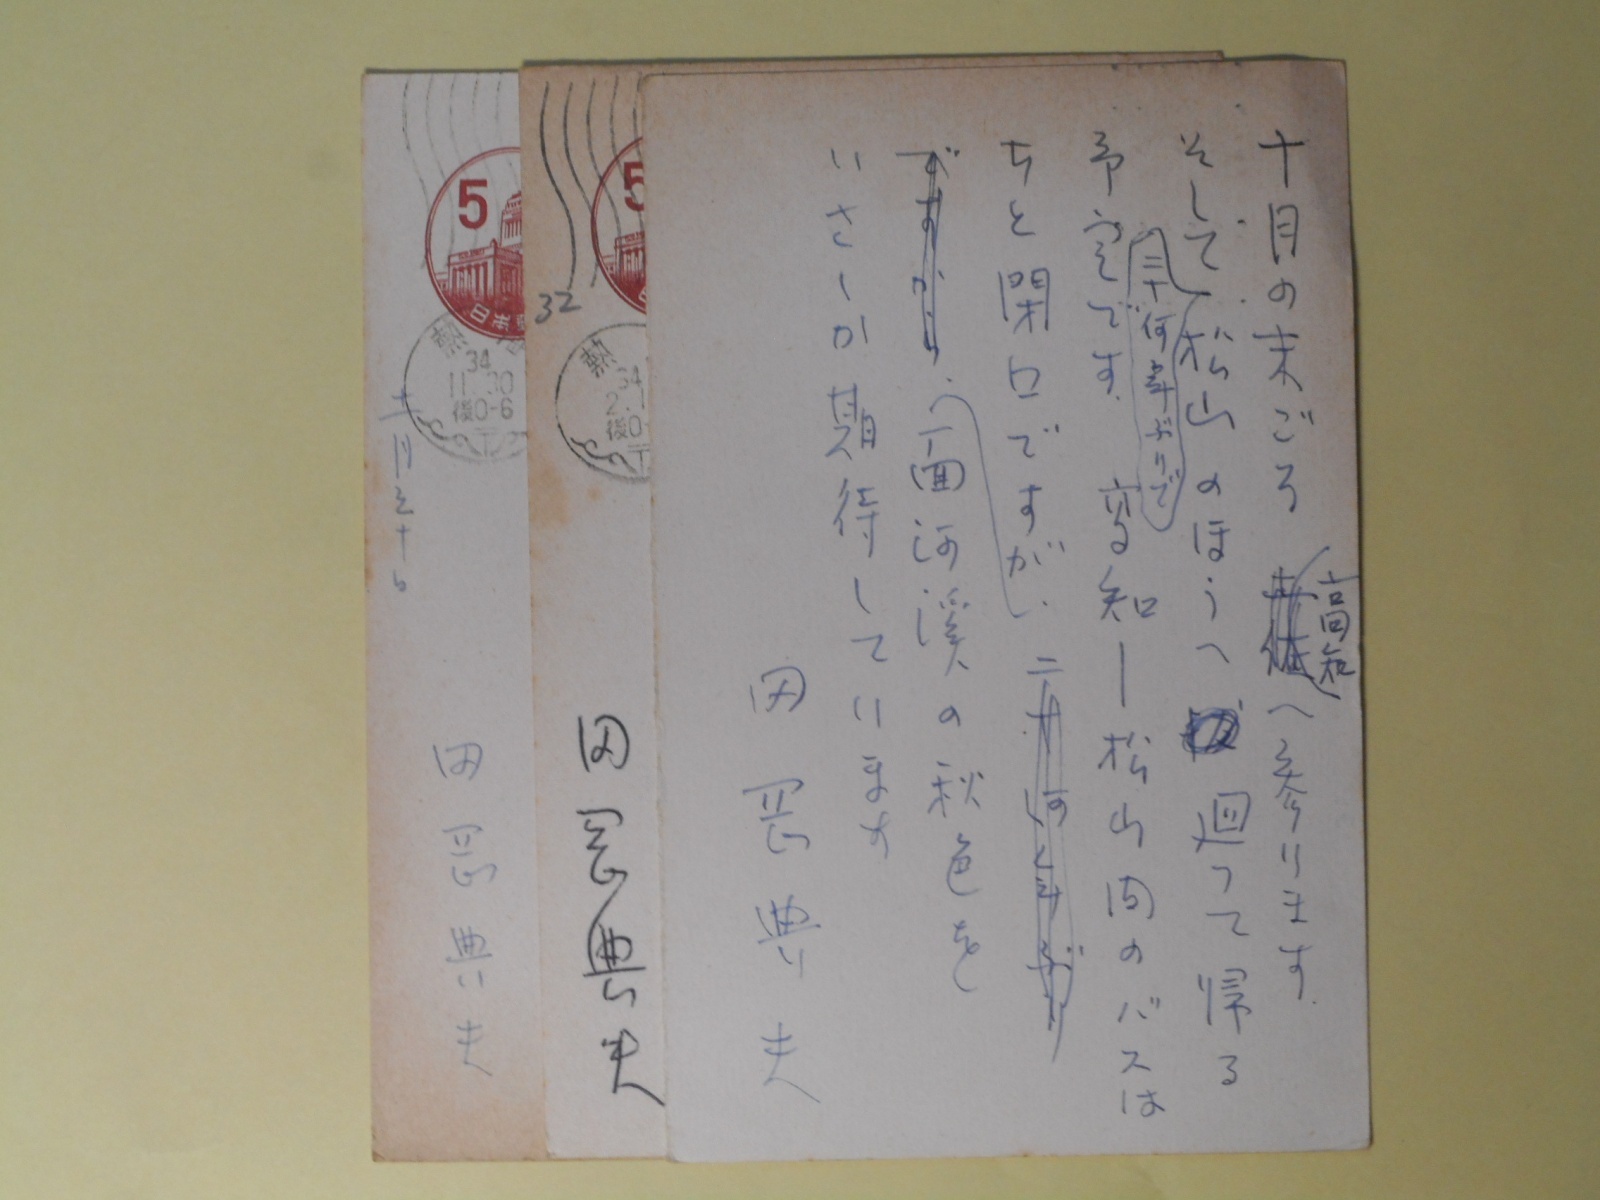 十月の末ごろ 高知へ参ります。
そして松山のほうへ 廻って帰る
三十何年ぶりで
予定です。高知ー松山間のバスは
ちと閉口ですが、
ですから、面河渓の秋色を
いさゝか期待しています
田岡典夫
5
32
熱
34
2.1
後0-
田岡典夫
5
日本郵
熱海
34
11.30
後0-6
十一月三十日
田岡典夫